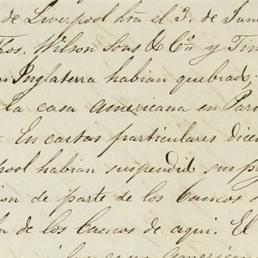 de Liverpool hta el 3. de Jun
Thos. Wilson Sons & Cn. y Tim
Inglaterra habian quebrado.
la casa Americana en Par
En cartas particulares dicen
pool habian suspendid sus p
ion de parte de los Bancos
de los Bancos de aqui. El